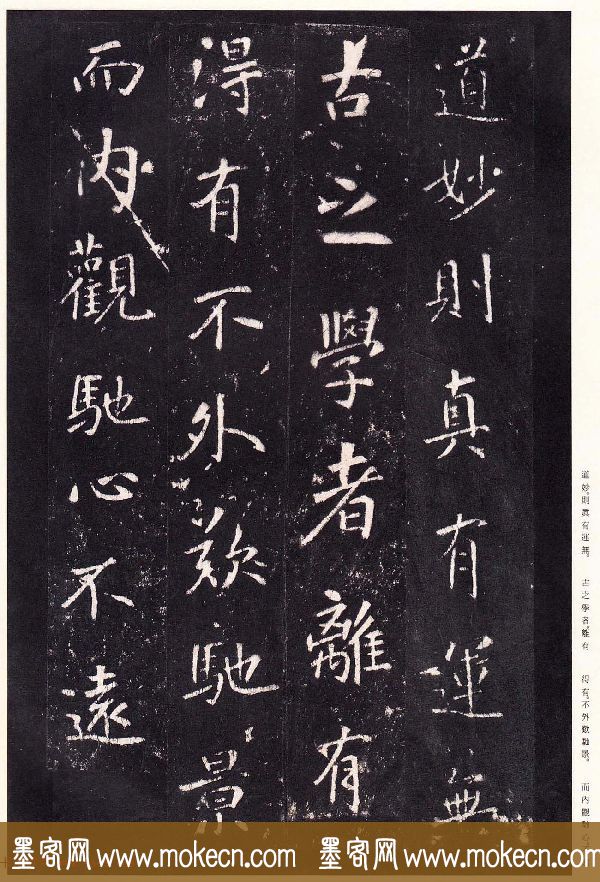 道妙則真有運無
古之學者離有
得有不外欵馳景
而内觀馳心不遠
道妙則真有運無。
古之學者離有
得有不外欵馳景。
而内觀馳心
墨客网 www.mokecn.com 墨客网 www.mokecn.com